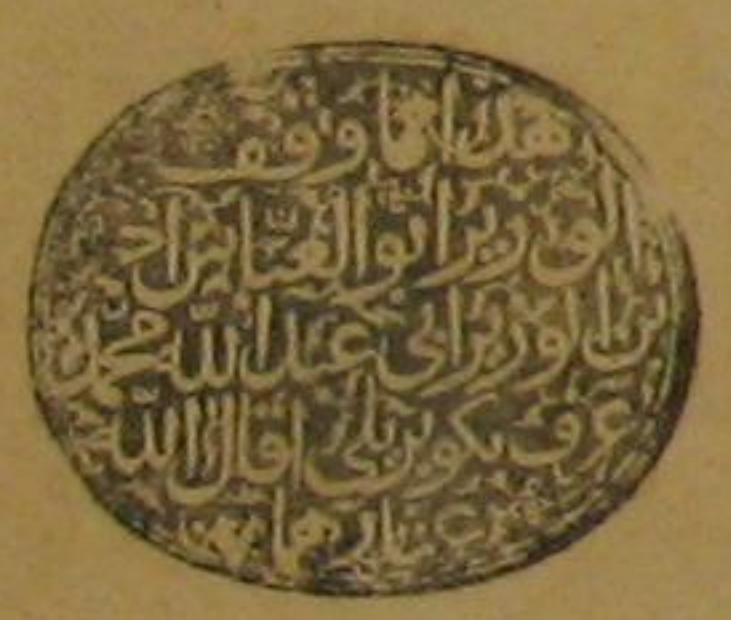 هذا مما وقف
الوزير ابو العباس احمد
بن الوزير ابى عبد الله محمد
عرف بكوبريلى اقال الله
عثارهما